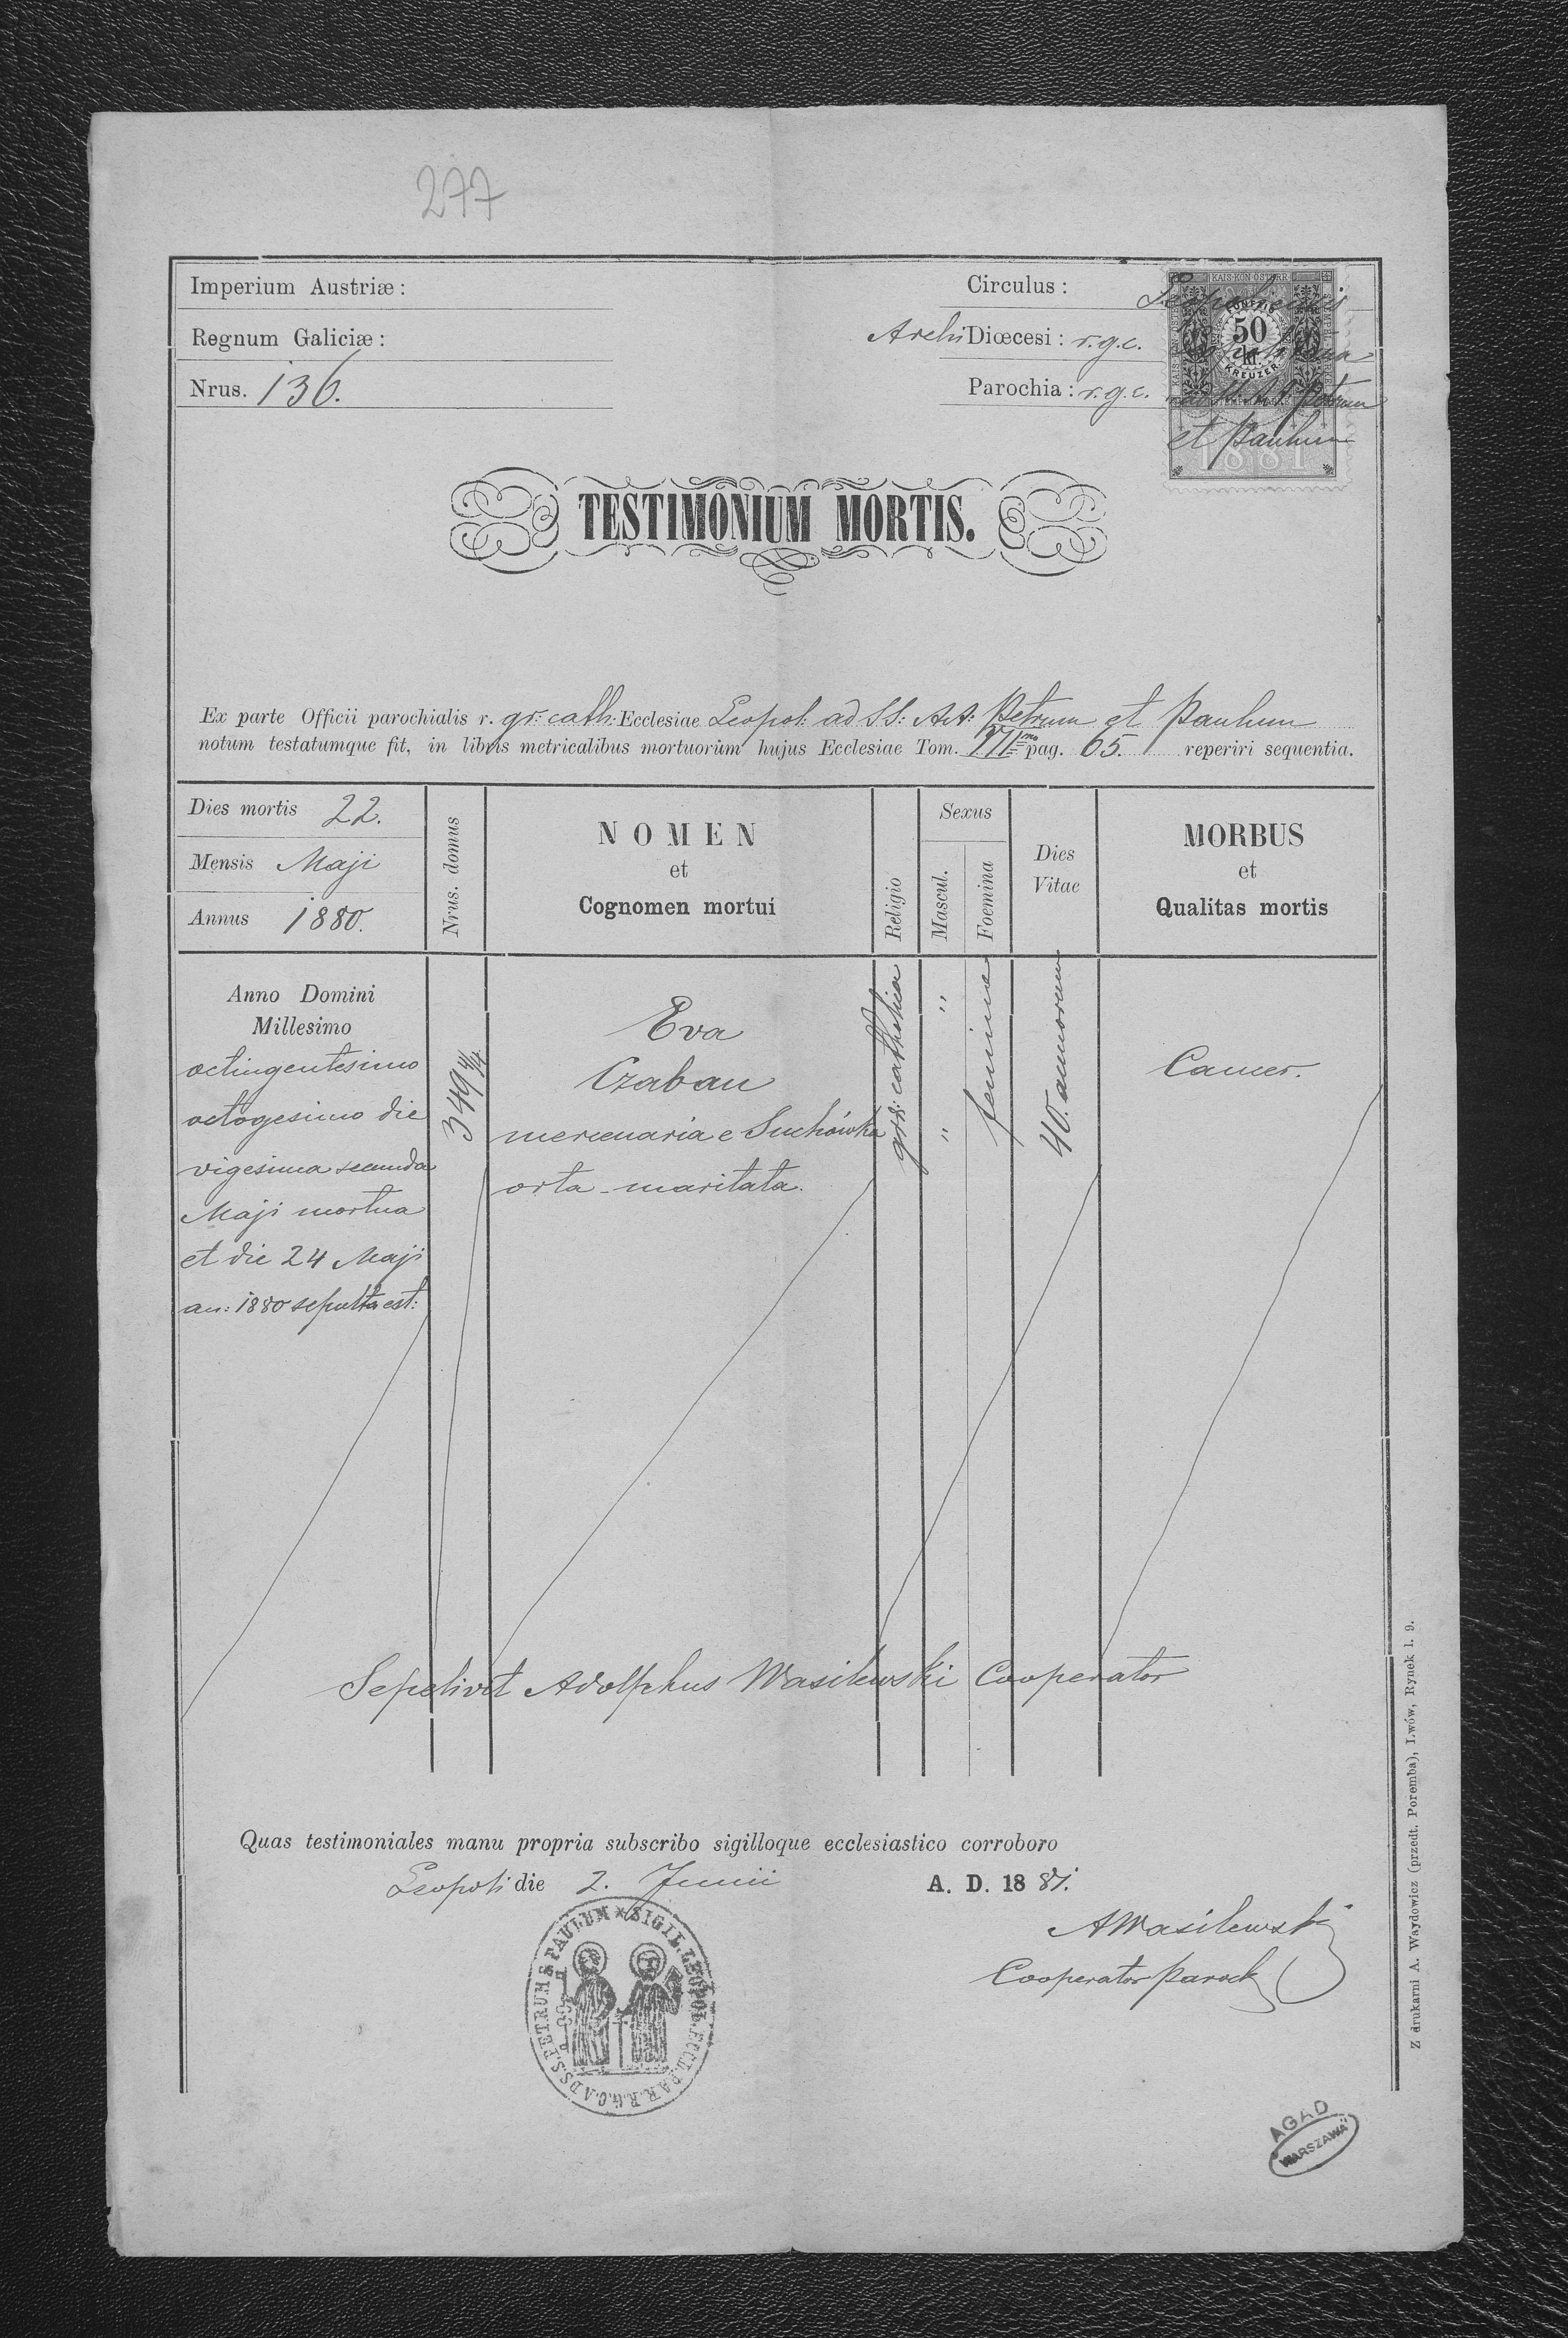 277
Imperium Austriæ:
Regnum Galiciæ:
Nrus. 136.
Circulus: Leopoliensis
Archi Diœcesi: r.g.c.
Parochia: r.g.c. ad SS. AA. Petrum
et Paulum
KAIS·KÖN·ÖSTERR
FÜNFZIG
50
kr.
KREUZER
1881
TESTIMONIUM MORTIS.
Ex parte Officii parochialis r. gr: cath: Ecclesiae Leopol: ad SS: AA: Petrum et Paulum
notum testatumque fit, in libris metricalibus mortuorum hujus Ecclesiae Tom. pag. 65. reperiri sequentia.
Dies mortis 22.
Mensis Maji
Annus 1880.
Nrus. domus
NOMEN
et
Cognomen mortui
Religio
Sexus
Mascul.
Foemina
Dies
Vitae
MORBUS
et
Qualitas mortis
Anno Domini
Millesimo
octingentesimo
octogesimo die
vigesima secunda
Maji mortua
et die 24 Maji
an: 1880 sepulta est:
349 4/4
Eva
Czaban
mercenaria e Suchówka
orta - maritata.
gr: catholica
" "
femina
40. annorum
Cancer.
Sepelivit Adolphus Wasilewski Cooperator
Quas testimoniales manu propria subscribo sigilloque ecclesiastico corroboro
Leopoli die 2. Junii A. D. 1881.
AWasilewski
Cooperator Paroch
SIGIL.LEOPOL.ECCL.PAR.R.G.C.AD S.S.PETRUM & PAULUM
AGAD
WARSZAWA
Z drukarni A. Waydowicz (przedt. Poremba), Lwów, Rynek l. 9.